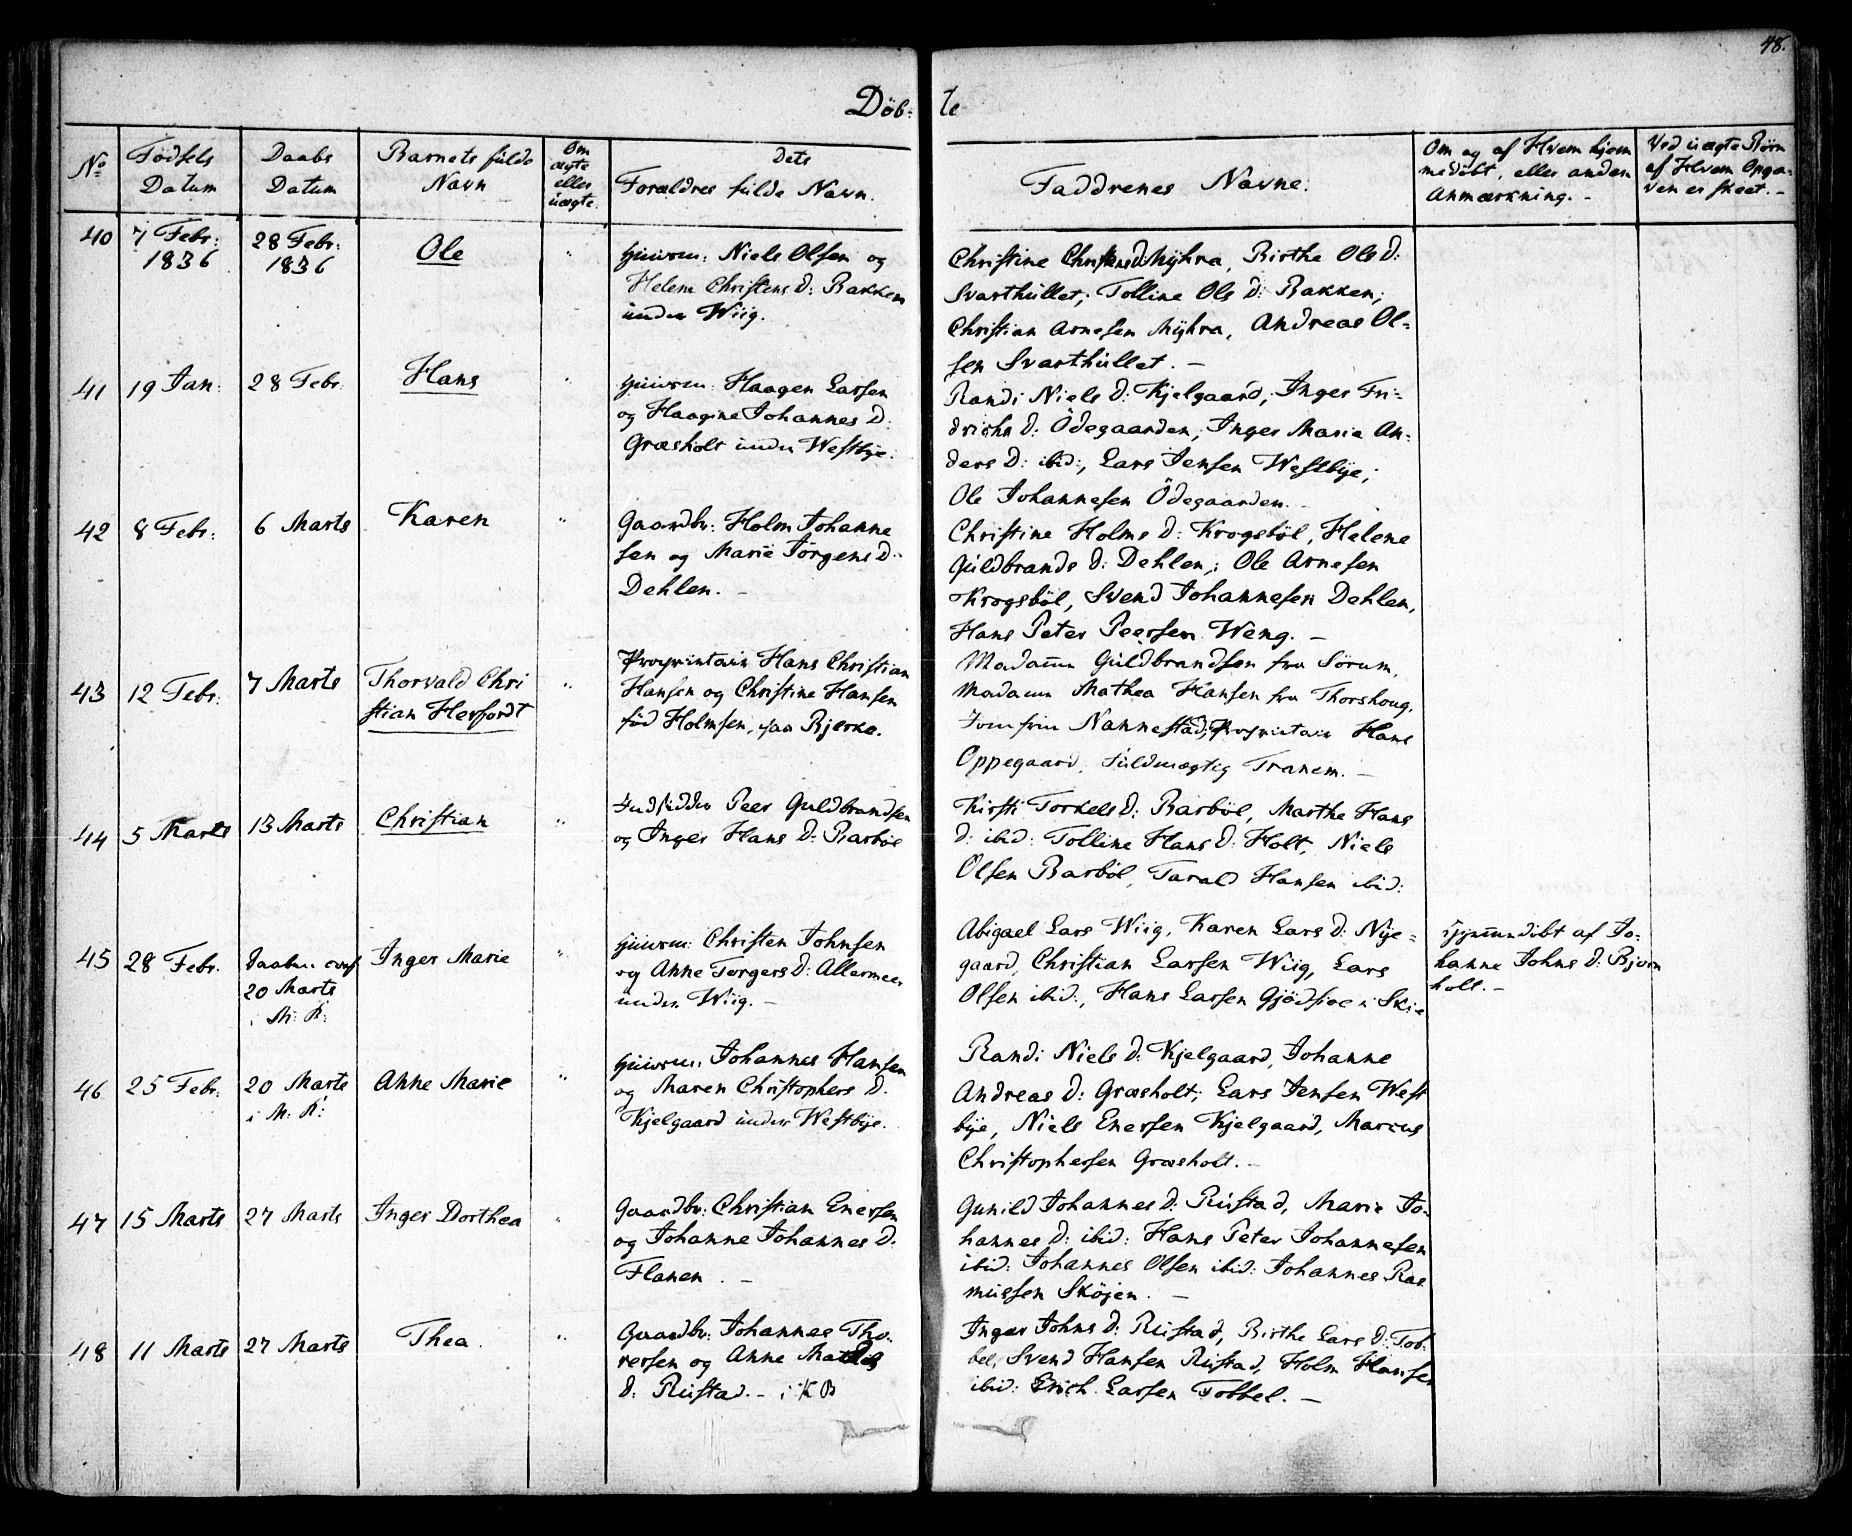 48.
Döb= te
No
Födsels Datum
Daabs Datum
Barnets fulde Navn
Om ægte eller uægte.
dets Forældres fulde Navn.
Faddrenes Navne.
Om og af Hvem hjemmedöbt, eller anden Anmærkning. -
Ved uægte Börn af Hvem Opgaven er skeet. -
40
7 Febr:
1836
28 Febr:
1836
Ole
"
Huusm: Niels Olsen og
Helene Christens D: Bakken
under Wiig.
Christine Christens D: Myhra, Birthe Ols D:
Svarthullet, Tolline Ols D: Bakken,
Christian Arnesen Myhra, Andreas Ol=
sen Svarthullet. -
41
19 Jan:
28 Febr.
Hans
"
Huusm: Haagen Larsen
og Haagine Johannes D:
Græsholt under Westbye.
Randi Niels D: Kjelgaard, Inger Fri=
drichs D: Ödegaarden, Inger Marie An=
ders D: ibid:, Lars Jensen Westbye,
Ole Johannesen Ödegaarden. -
42
8 Febr:
6 Marts
Karen
"
Gaardbr: Holm Johanne
sen og Marie Jörgens D:
Dehlen. -
Christine Holms D: Krogsböl, Helene
Guldbrands D: Dehlen, Ole Arnesen
Krogsböl, Svend Johannesen Dehlen,
Hans Peter Peersen Weng. -
43
12 Febr.
7 Marts
Thorvald Chri
stian Herfordt
"
Proprietair Hans Christian
Hansen og Christine Hansen
föd Holmsen, paa Bjerke.
Madame Guldbrandsen fra Sörum,
Madame Mathea Hansen fra Thorshoug,
Jomfru Nannestad, Proprietair Hans
Oppegaard, Fuldmægtig Tranem. -
44
5 Marts
13 Marts
Christian
"
Indsidder Peer Guldbrandsen
og Inger Hans D: Barböl
Kirsti Torkels D: Barböl, Marthe Hans
D: ibid: Tolline Hans D: Holt, Niels
Olsen Barböl, Tarald Hansen ibid:
45
28 Febr.
Daaben
20 Marts
i M: K:
Inger Marie
"
Huusm: Christen Johnsen
og Anne Torgers D: Allermeer
under Wiig. -
Abigael Lars Wiig, Karen Lars D: Nye=
gaard, Christian Larsen Wiig, Lars
Olsen ibid:, Hans Larsen i Skie
Hjemmedöbt af Jo=
hanne Johns D: Bjørn
holt. -
46
25 Febr.
20 Marts
i M: K:
Anne Marie
"
Huusm: Johannes Hansen
og Maren Christophers D:
Kjelgaard under Westbye.
Randi Niels D: Kjelgaard, Johanne
Andreas D: Græsholt, Lars Jensen West
bye, Niels Enersen Kjelgaard, Marcus
Christophersen Græsholt. -
47
15 Marts
27 Marts
Inger Dorthea
"
Gaardbr: Christian Enersen
og Johanne Johannes D:
Flanen. -
Gunild Johannes D: Rustad, Marie Jo=
hannes D: ibid: Hans Peter Johannesen
ibid: Johannes Olsen ibid: Johannes Ras
mussen Sköjen. -
48
11 Marts
27 Marts
Thea.
"
Gaardbr: Johannes Tho=
rersen og Anne
D: Rustad. - i K B
Inger Johns D: Rustad, Birthe Lars D: Tob=
bel, Svend Hansen Rustad, Holm Hansen
ibid: Erich Larsen Tobbel. -